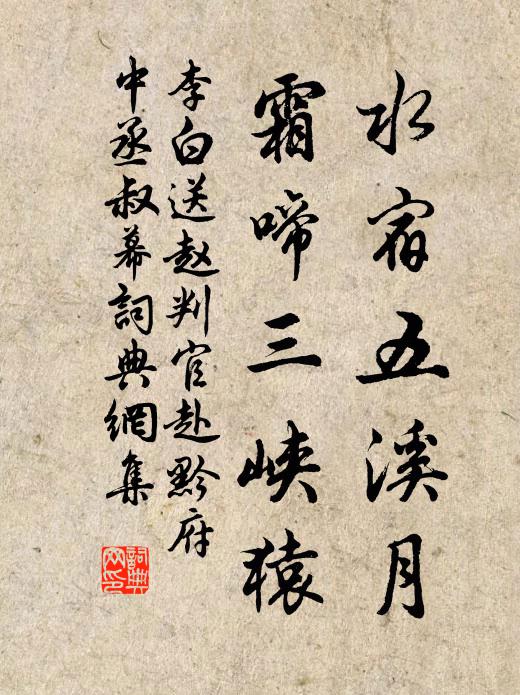 水宿五溪月
霜啼三峡猿
李白送赵判官赴黔府
中丞叔幕詞典網集
詞典
网印